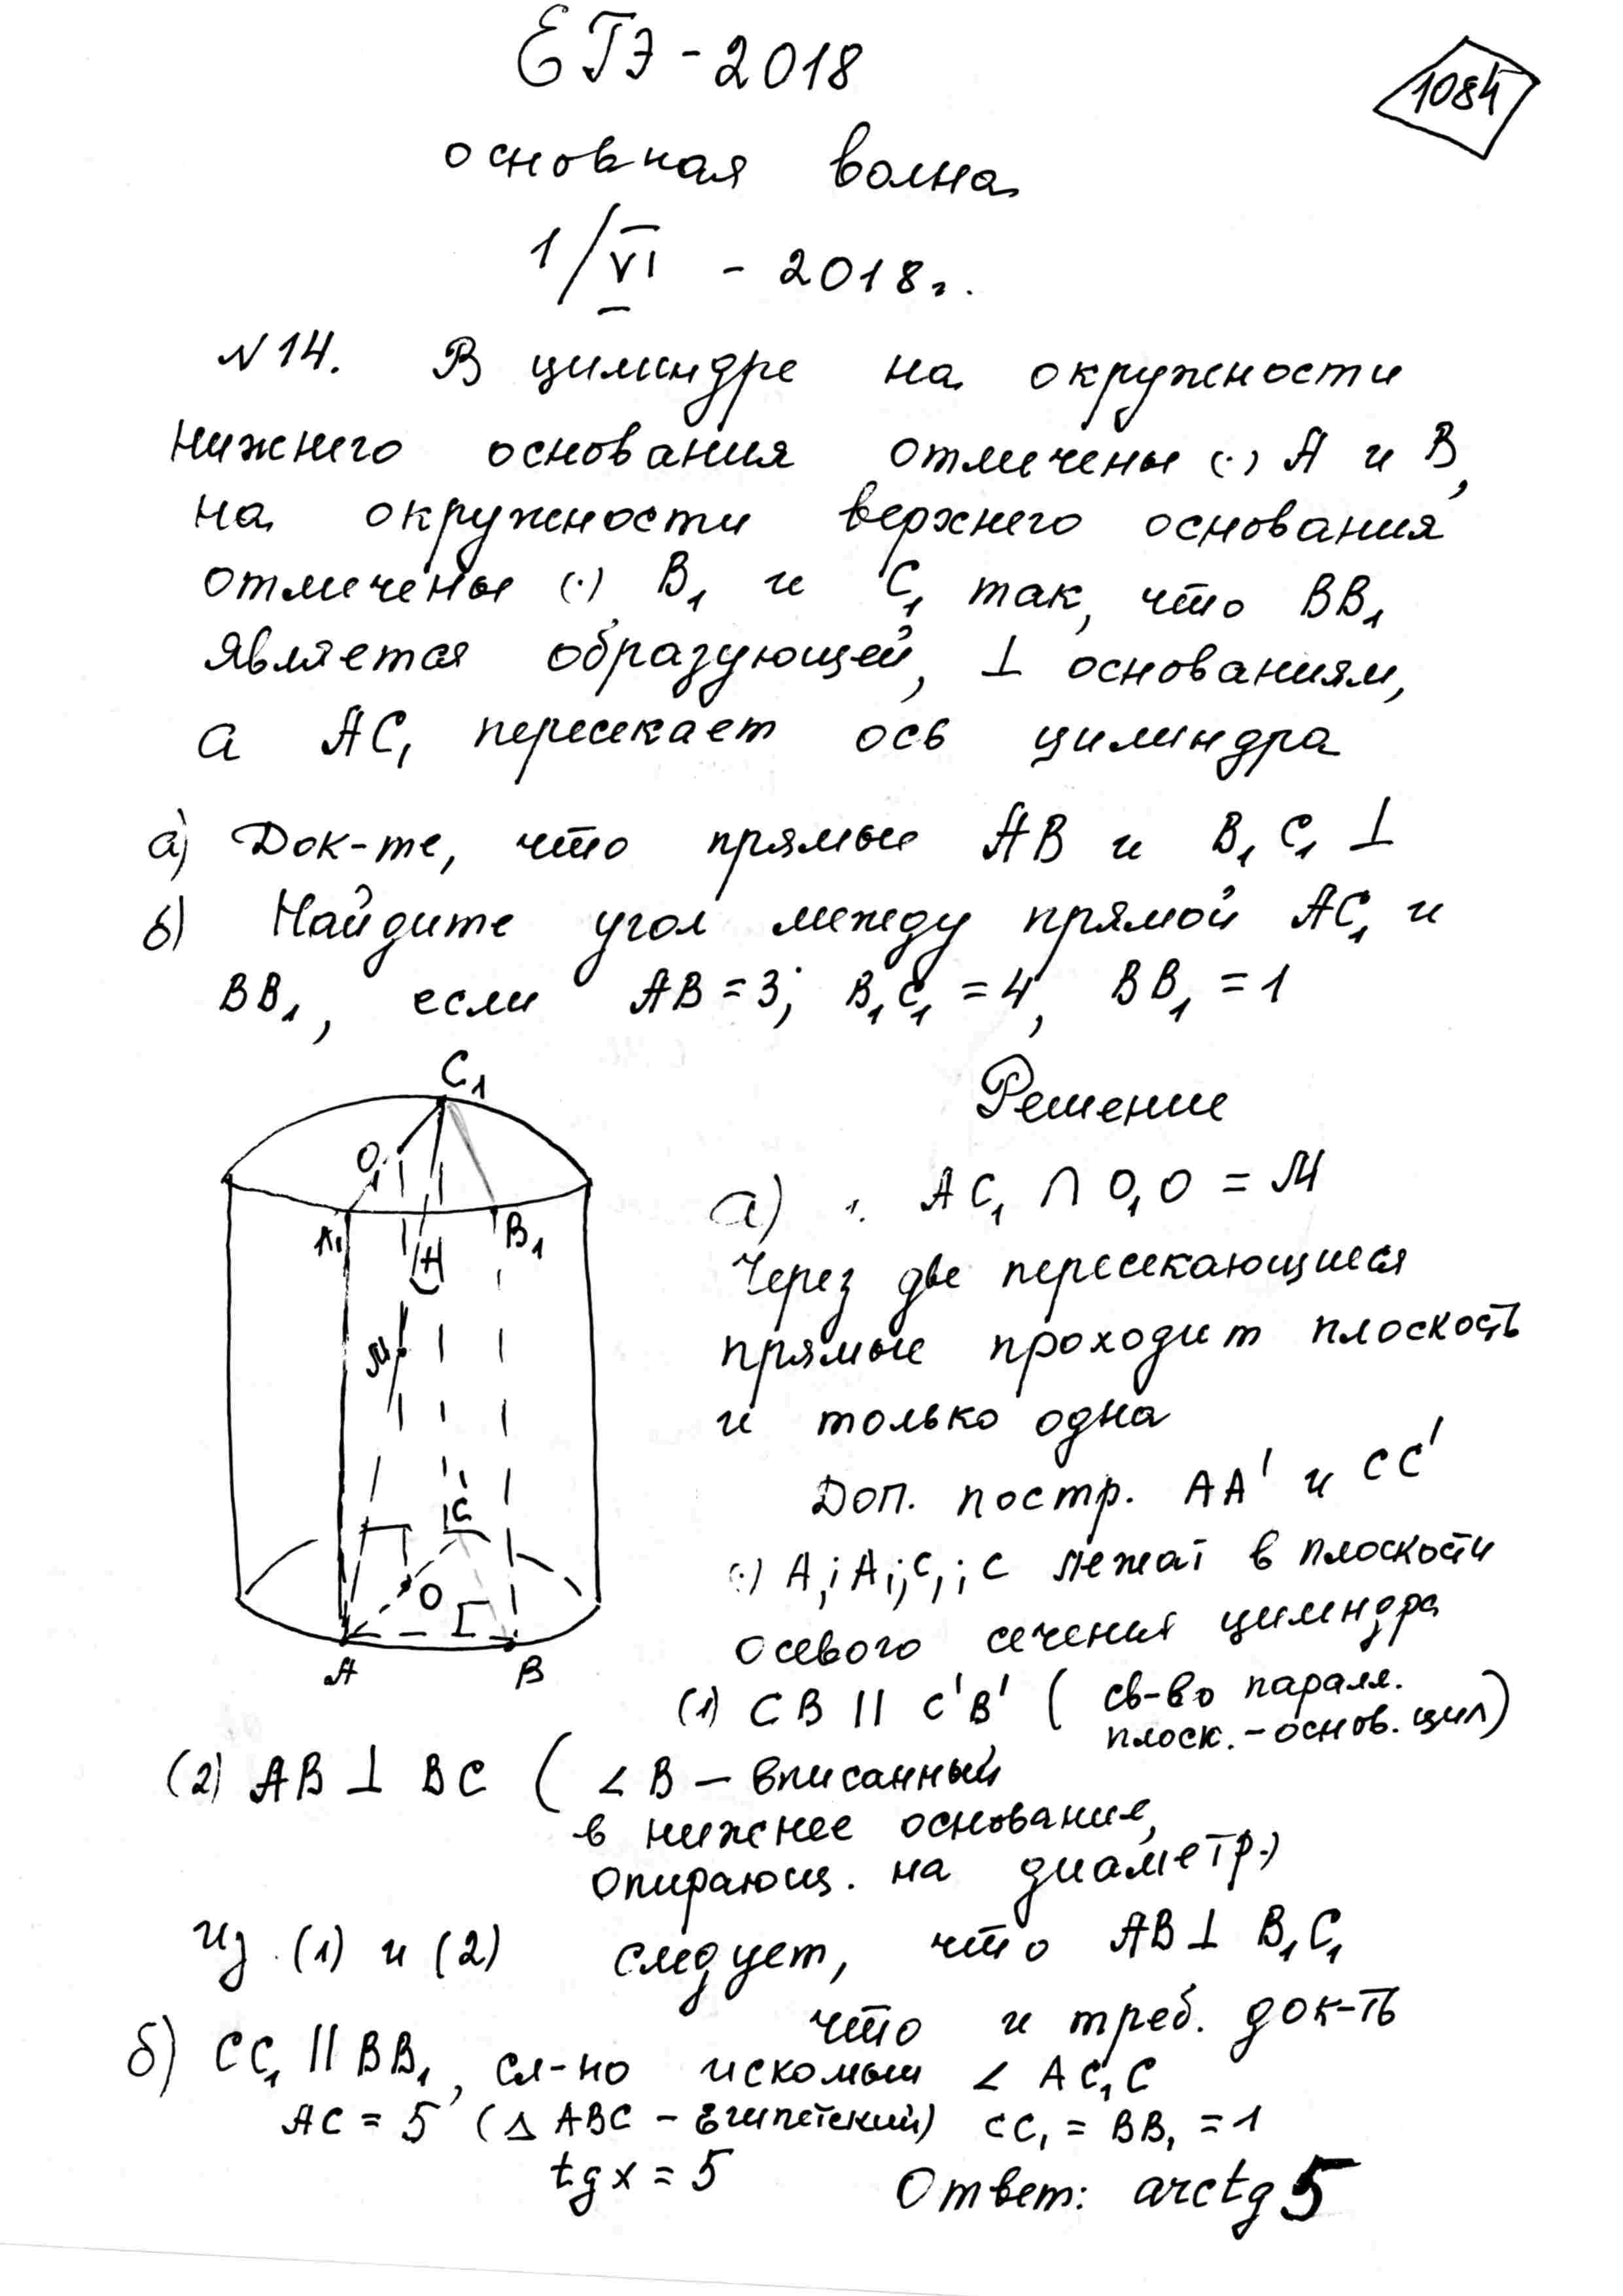 ЕГЭ - 2018
1084
основная волна
1/VI - 2018г.
№14. В цилиндре на окружности
нижнего основания отмечены (·) А и В,
на окружности верхнего основания
отмечены (·) В₁ и С₁ так, что ВВ₁
является образующей, ⊥ основаниям,
а АС₁ пересекает ось цилиндра
а) Док-те, что прямые АВ и В₁С₁ ⊥
б) Найдите угол между прямой АС₁ и
ВВ₁, если АВ = 3; В₁С₁ = 4, ВВ₁ = 1
Решение
С₁
О₁
А₁
В₁
Н
М
С
О
А
В
а) АС₁ ∩ О₁О = М
Через две пересекающиеся
прямые проходит плоскость
и только одна
Доп. постр. АА' и СС'
(·) А; А₁; С₁; С лежат в плоскости
осевого сечения цилиндра
(1) СВ || С'В' ( св-во паралл.
плоск. - основ. цил)
(2) АВ ⊥ ВС ( ∠В — вписанный
в нижнее основание,
опирающ. на диаметр.)
Из (1) и (2) следует, что АВ ⊥ В₁С₁
что и треб. док-ть
б) СС₁ || ВВ₁, сл-но искомый ∠ АС₁С
АС = 5 (△ АВС - Египетский) СС₁ = ВВ₁ = 1
tg x = 5
Ответ: arctg 5